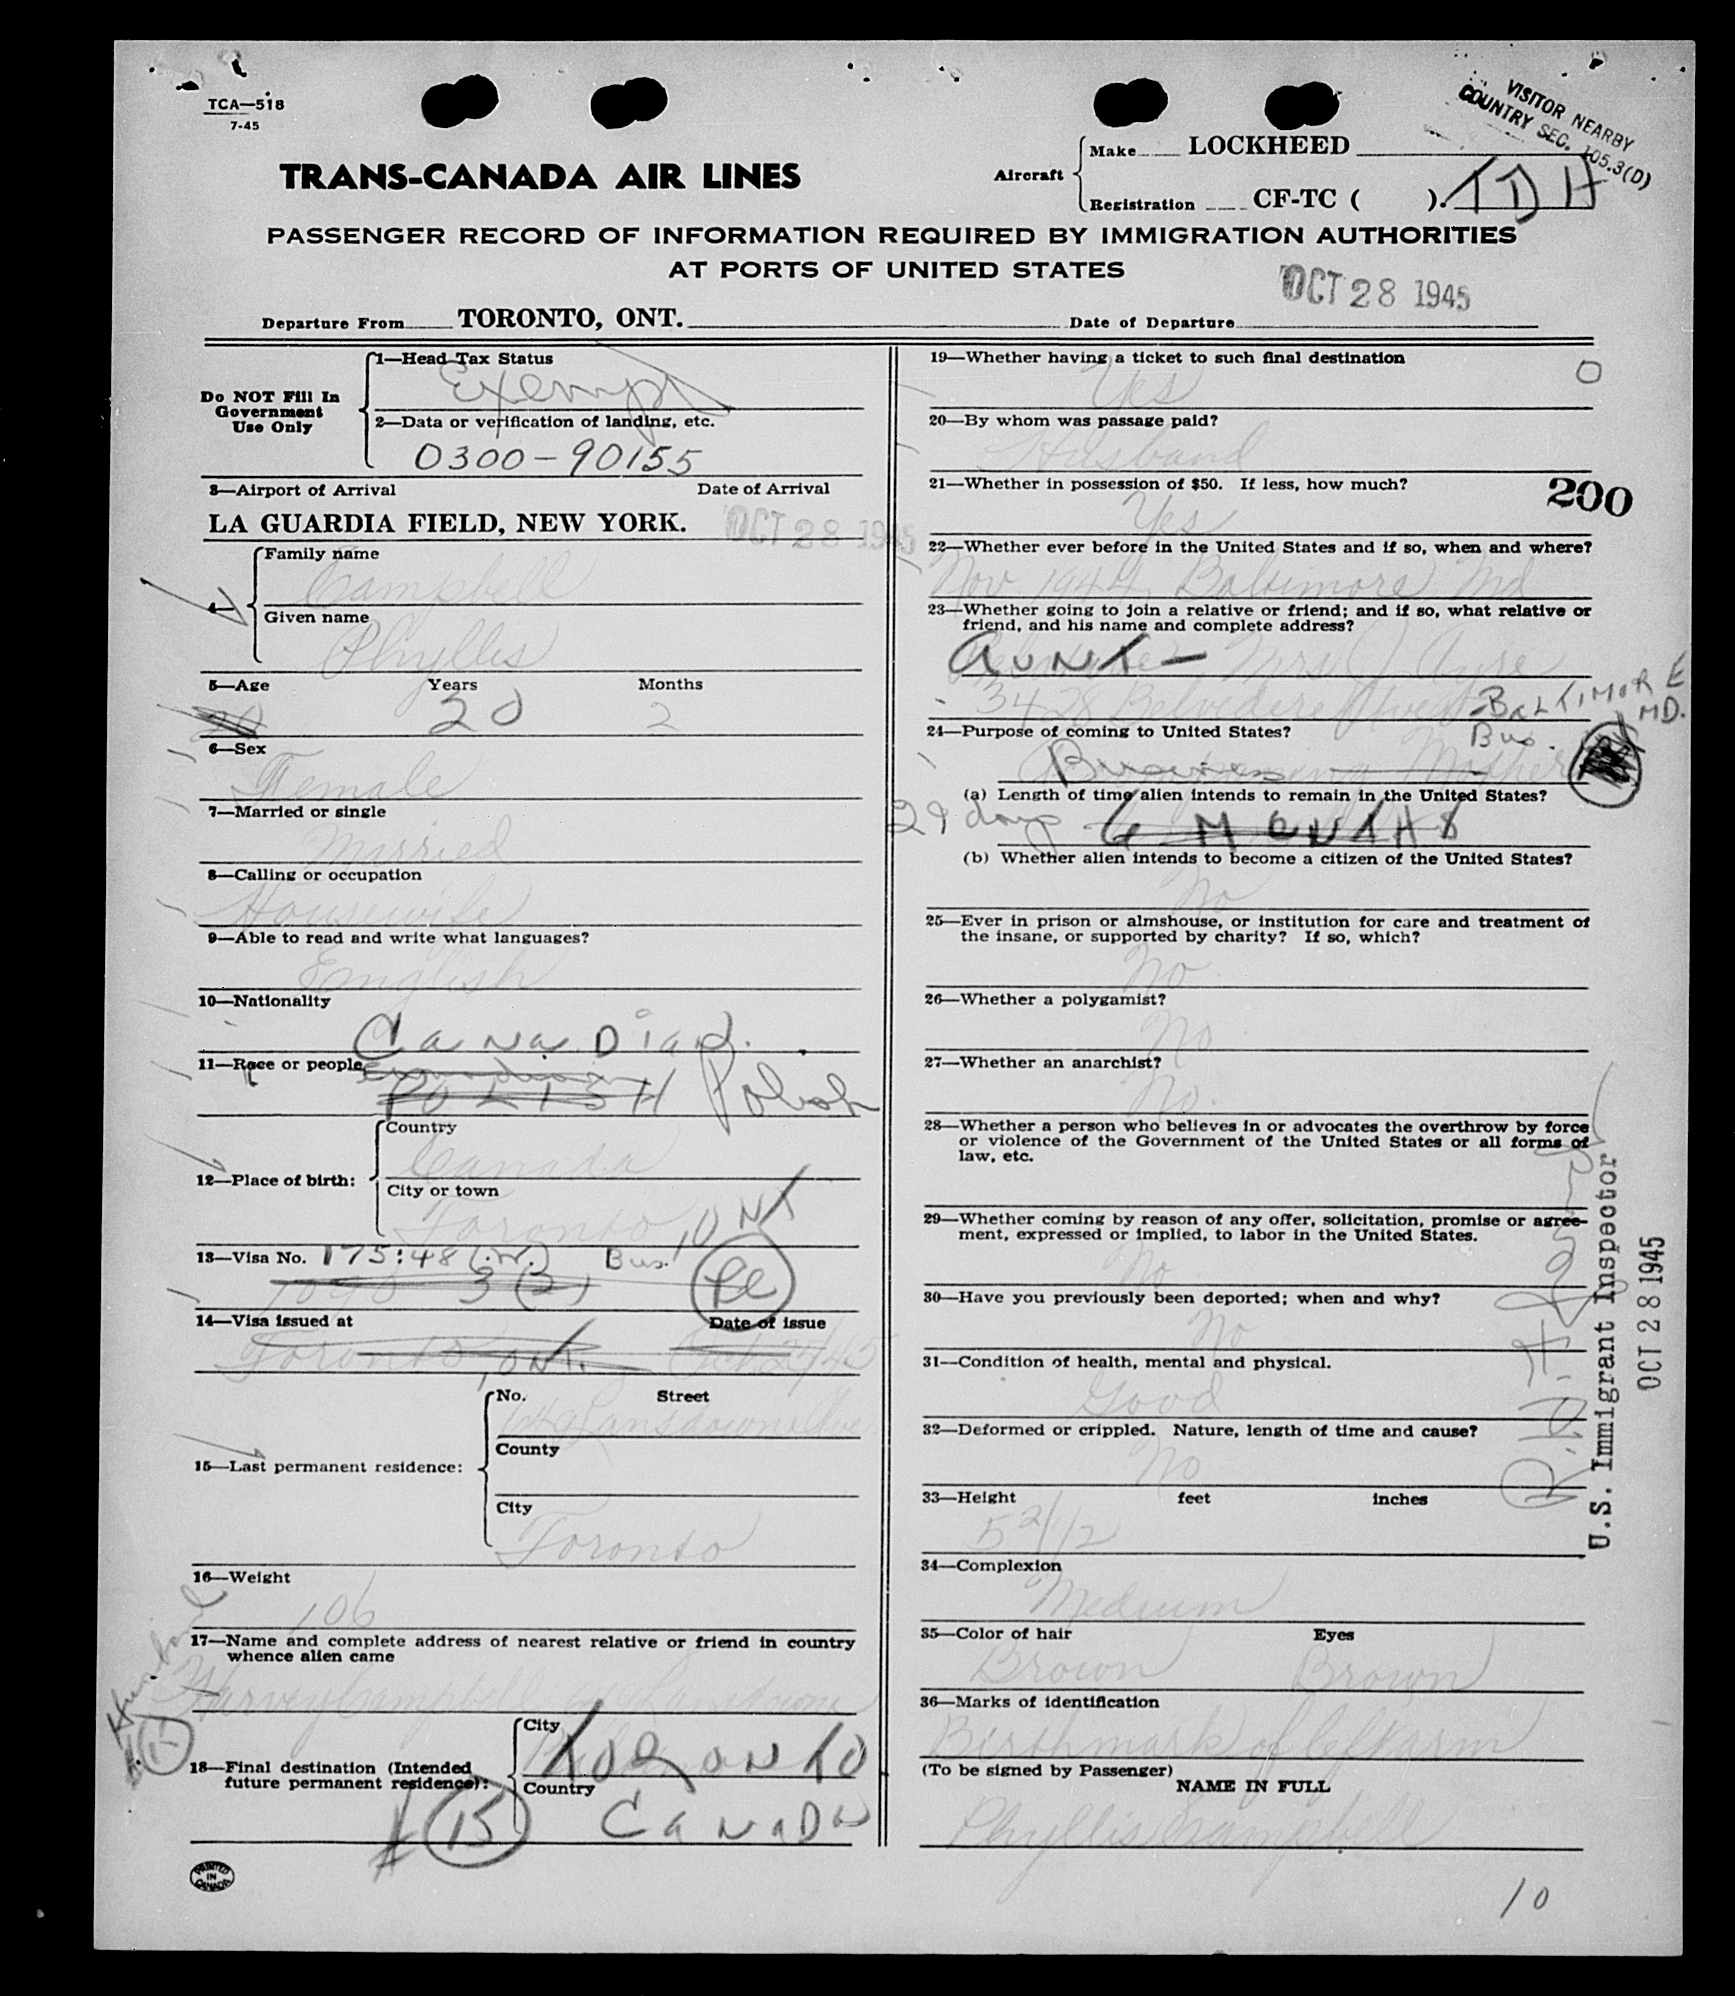 TCA—518
7-45
VISITOR NEARBY
COUNTRY SEC. 105.3(D)
TRANS-CANADA AIR LINES
Aircraft
Make LOCKHEED
Registration CF-TC ( ). TDH
PASSENGER RECORD OF INFORMATION REQUIRED BY IMMIGRATION AUTHORITIES
AT PORTS OF UNITED STATES
OCT 28 1945
Departure From TORONTO, ONT.
Date of Departure
Do NOT Fill In
Government
Use Only
1—Head Tax Status
Exempt
2—Data or verification of landing, etc.
0300-90155
3—Airport of Arrival Date of Arrival
LA GUARDIA FIELD, NEW YORK. OCT 28 1945
4—
Family name
Campbell
Given name
Phyllis
5—Age Years Months
20 20 2
6—Sex
Female
7—Married or single
Married
8—Calling or occupation
Housewife
9—Able to read and write what languages?
English
10—Nationality
Canadian.
11—Race or people
Canadian
POLISH Polish
12—Place of birth:
Country
Canada
City or town
Toronto, ONT
13—Visa No. 175:48 Bus.
3(2)
14—Visa issued at Date of issue
Toronto, ONT. Oct 27/45
15—Last permanent residence:
No. Street
Lansdowne Ave
County
City
Toronto
16—Weight
106
17—Name and complete address of nearest relative or friend in country
whence alien came
Husband
Harvey Campbell Lansdowne
18—Final destination (Intended
future permanent residence):
City
TORONTO
Country
CANADA
15
PRINTED
IN
CANADA
19—Whether having a ticket to such final destination
Yes 0
20—By whom was passage paid?
Husband
21—Whether in possession of $50. If less, how much?
Yes
200
22—Whether ever before in the United States and if so, when and where?
Nov 1944 Baltimore Md
23—Whether going to join a relative or friend; and if so, what relative or
friend, and his name and complete address?
AUNT — Mrs J Ayre
3428 Belvedire Ave BALTIMORE
MD.
24—Purpose of coming to United States?
Bus.
Business Mother
(a) Length of time alien intends to remain in the United States?
29 days 6 MONTHS
(b) Whether alien intends to become a citizen of the United States?
No
25—Ever in prison or almshouse, or institution for care and treatment of
the insane, or supported by charity? If so, which?
No
26—Whether a polygamist?
No
27—Whether an anarchist?
No.
28—Whether a person who believes in or advocates the overthrow by force
or violence of the Government of the United States or all forms of
law, etc.
29—Whether coming by reason of any offer, solicitation, promise or agree-
ment, expressed or implied, to labor in the United States.
No
30—Have you previously been deported; when and why?
No
31—Condition of health, mental and physical.
Good
32—Deformed or crippled. Nature, length of time and cause?
No
33—Height feet inches
5 2/12
34—Complexion
Medium
35—Color of hair Eyes
Brown Brown
36—Marks of identification
Birthmark of left arm
(To be signed by Passenger)
NAME IN FULL
Phyllis Campbell
U.S. Immigrant Inspector
OCT 28 1945
10